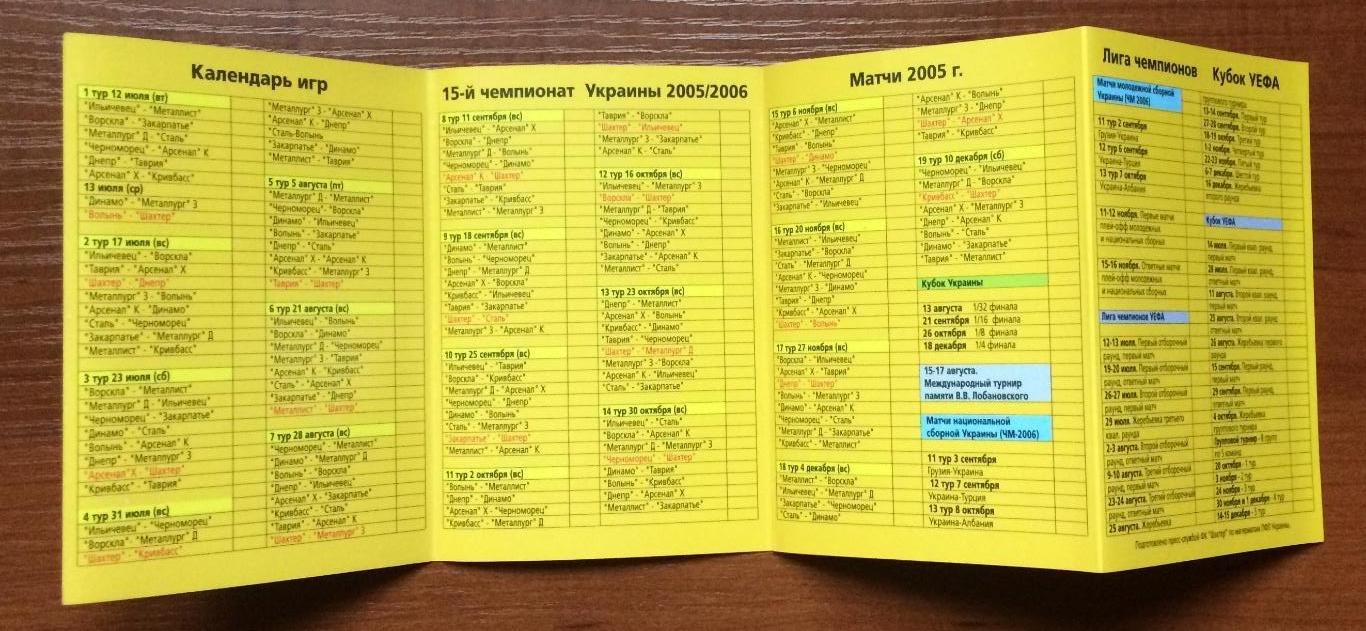 Календарь игр
1 тур 12 июля (вт)
"Ильичевец" - "Металлист"
"Ворскла" - "Закарпатье"
"Металлург" Д - "Сталь"
"Черноморец" - "Арсенал" К
"Днепр" - "Таврия"
"Арсенал" Х - "Кривбасс"
13 июля (ср)
"Динамо" - "Металлург" З
"Волынь" - "Шахтер"
2 тур 17 июля (вс)
"Ильичевец" - "Ворскла"
"Таврия" - "Арсенал" Х
"Шахтер" - "Днепр"
"Металлург" З - "Волынь"
"Арсенал" К - "Динамо"
"Сталь" - "Черноморец"
"Закарпатье" - "Металлург" Д
"Металлист" - "Кривбасс"
3 тур 23 июля (сб)
"Ворскла" - "Металлист"
"Металлург" Д - "Ильичевец"
"Черноморец" - "Закарпатье"
"Динамо" - "Сталь"
"Волынь" - "Арсенал" К
"Днепр" - "Металлург" З
"Арсенал" Х - "Шахтер"
"Кривбасс" - "Таврия"
4 тур 31 июля (вс)
"Ильичевец" - "Черноморец"
"Ворскла" - "Металлург" Д
"Шахтер" - "Кривбасс"
"Металлург" З - "Арсенал" Х
"Арсенал" К - "Днепр"
"Сталь-Волынь"
"Закарпатье" - "Динамо"
"Металлист" - "Таврия"
5 тур 5 августа (пт)
"Металлург" Д - "Металлист"
"Черноморец" - "Ворскла"
"Динамо" - "Ильичевец"
"Волынь" - "Закарпатье"
"Днепр" - "Сталь"
"Арсенал" Х - "Арсенал" К
"Кривбасс" - "Металлург" З
"Таврия" - "Шахтер"
6 тур 21 августа (вс)
"Ильичевец" - "Волынь"
"Ворскла" - "Динамо"
"Металлург" Д - "Черноморец"
"Металлург" З - "Таврия"
"Арсенал" К - "Кривбасс"
"Сталь" - "Арсенал" Х
"Закарпатье" - "Днепр"
"Металлист" - "Шахтер"
7 тур 28 августа (вс)
"Черноморец" - "Металлист"
"Динамо" - "Металлург" Д
"Волынь" - "Ворскла"
"Днепр" - "Ильичевец"
"Арсенал" Х - "Закарпатье"
"Кривбасс" - "Сталь"
"Таврия" - "Арсенал" К
"Шахтер" - "Металлург" З
15-й чемпионат Украины 2005/2006
8 тур 11 сентября (вс)
"Ильичевец" - "Арсенал" Х
"Ворскла" - "Днепр"
"Металлург" Д - "Волынь"
"Черноморец" - "Динамо"
"Арсенал" К - "Шахтер"
"Сталь" - "Таврия"
"Закарпатье" - "Кривбасс"
"Металлист" - "Металлург" З
9 тур 18 сентября (вс)
"Динамо" - "Металлист"
"Волынь" - "Черноморец"
"Днепр" - "Металлург" Д
"Арсенал" Х - "Ворскла"
"Кривбасс" - "Ильичевец"
"Таврия" - "Закарпатье"
"Шахтер" - "Сталь"
"Металлург" З - "Арсенал" К
10 тур 25 сентября (вс)
"Ильичевец" - "Таврия"
"Ворскла" - "Кривбасс"
"Металлург" Д - "Арсенал" Х
"Черноморец" - "Днепр"
"Динамо" - "Волынь"
"Сталь" - "Металлург" З
"Закарпатье" - "Шахтер"
"Металлист" - "Арсенал" К
11 тур 2 октября (вс)
"Волынь" - "Металлист"
"Днепр" - "Динамо"
"Арсенал" Х - "Черноморец"
"Кривбасс" - "Металлург" Д
"Таврия" - "Ворскла"
"Шахтер" - "Ильичевец"
"Металлург" З - "Закарпатье"
"Арсенал" К - "Сталь"
12 тур 16 октября (вс)
"Ильичевец" - "Металлург" З
"Ворскла" - "Шахтер"
"Металлург" Д - "Таврия"
"Черноморец" - "Кривбасс"
"Динамо" - "Арсенал" Х
"Волынь" - "Днепр"
"Закарпатье" - "Арсенал" К
"Металлист" - "Сталь"
13 тур 23 октября (вс)
"Днепр" - "Металлист"
"Арсенал" Х - "Волынь"
"Кривбасс" - "Динамо"
"Таврия" - "Черноморец"
"Шахтер" - "Металлург" Д
"Металлург" З - "Ворскла"
"Арсенал" К - "Ильичевец"
"Сталь" - "Закарпатье"
14 тур 30 октября (вс)
"Ильичевец" - "Сталь"
"Ворскла" - "Арсенал" К
"Металлург" Д - "Металлург" З
"Черноморец" - "Шахтер"
"Динамо" - "Таврия"
"Волынь" - "Кривбасс"
"Днепр" - "Арсенал" Х
"Металлист" - "Закарпатье"
Матчи 2005 г.
15 тур 6 ноября (вс)
"Арсенал" Х - "Металлист"
"Кривбасс" - "Днепр"
"Таврия" - "Волынь"
"Шахтер" - "Динамо"
"Металлург" З - "Черноморец"
"Арсенал" К - "Металлург" Д
"Сталь" - "Ворскла"
"Закарпатье" - "Ильичевец"
16 тур 20 ноября (вс)
"Металлист" - "Ильичевец"
"Закарпатье" - "Ворскла"
"Сталь" - "Металлург" Д
"Арсенал" К - "Черноморец"
"Металлург" З - "Динамо"
"Таврия" - "Днепр"
"Кривбасс" - "Арсенал" Х
"Шахтер" - "Волынь"
17 тур 27 ноября (вс)
"Ворскла" - "Ильичевец"
"Арсенал" Х - "Таврия"
"Днепр" - "Шахтер"
"Волынь" - "Металлург" З
"Динамо" - "Арсенал" К
"Черноморец" - "Сталь"
"Металлург" Д - "Закарпатье"
"Кривбасс" - "Металлист"
18 тур 4 декабря (вс)
"Металлист" - "Ворскла"
"Ильичевец" - "Металлург" Д
"Закарпатье" - "Черноморец"
"Сталь" - "Динамо"
"Арсенал" К - "Волынь"
"Металлург" З - "Днепр"
"Шахтер" - "Арсенал" Х
"Таврия" - "Кривбасс"
19 тур 10 декабря (сб)
"Черноморец" - "Ильичевец"
"Металлург" Д - "Ворскла"
"Кривбасс" - "Шахтер"
"Арсенал" Х - "Металлург" З
"Днепр" - "Арсенал" К
"Волынь" - "Сталь"
"Динамо" - "Закарпатье"
"Таврия" - "Металлист"
Кубок Украины
13 августа 1/32 финала
21 сентября 1/16 финала
26 октября 1/8 финала
18 декабря 1/4 финала
15-17 августа.
Международный турнир
памяти В.В. Лобановского
Матчи национальной
сборной Украины (ЧМ-2006)
11 тур 3 сентября
Грузия-Украина
12 тур 7 сентября
Украина-Турция
13 тур 8 октября
Украина-Албания
Лига чемпионов Кубок УЕФА
Матчи молодежной сборной
Украины (ЧМ 2006)
11 тур 2 сентября
Грузия-Украина
12 тур 6 сентября
Украина-Турция
13 тур 7 октября
Украина-Албания
11-12 ноября. Первые матчи
плей-офф молодежных
и национальных сборных
15-16 ноября. Ответные матчи
плей-офф молодежных
и национальных сборных
Лига чемпионов УЕФА
12-13 июля. Первый отборочный
раунд, первый матч
19-20 июля. Первый отборочный
раунд, ответный матч
26-27 июля. Второй отборочный
раунд, первый матч
29 июля. Жеребьевка третьего
квал. раунда
2-3 августа. Второй отборочный
раунд, ответный матч
9-10 августа. Третий отборочный
раунд, первый матч
23-24 августа. Третий отборочный
раунд, ответный матч
25 августа. Жеребьевка
группового турнира
13-14 сентября. Первый тур
27-28 сентября. Второй тур
18-19 октября. Третий тур
1-2 ноября. Четвертый тур
22-23 ноября. Пятый тур
6-7 декабря. Шестой тур
16 декабря. Жеребьевка
второго раунда
Кубок УЕФА
14 июля. Первый квал. раунд,
первый матч
28 июля. Первый квал. раунд,
ответный матч
11 августа. Второй квал. раунд,
первый матч
25 августа. Второй квал. раунд,
ответный матч
26 августа. Жеребьевка первого
раунда
15 сентября. Первый раунд,
первый матч
29 сентября. Первый раунд,
ответный матч
4 октября. Жеребьевка
Групповой турнир - 8 групп
по 5 команд
20 октября - 1 тур
3 ноября - 2 тур
24 ноября - 3 тур
30 ноября и 1 декабря - 4 тур
14-15 декабря - 5 тур
Подготовлено пресс-службой ФК "Шахтер" по материалам ПФЛ Украины.